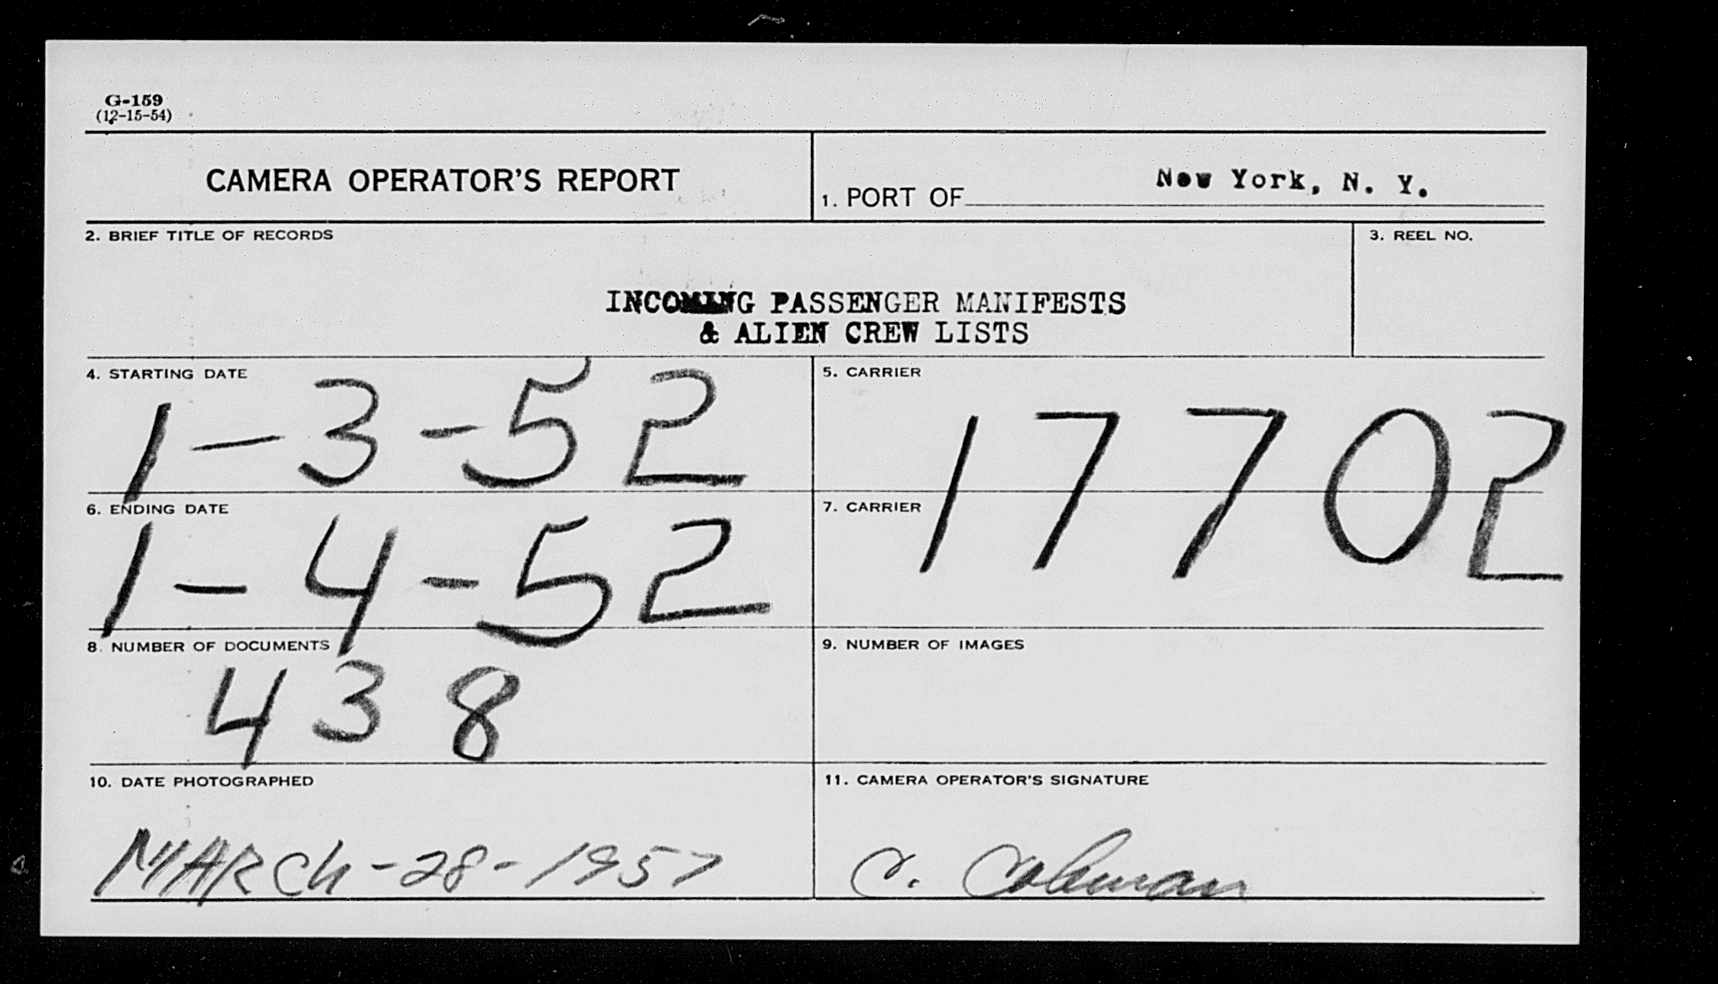 G-159
(12-15-54)
CAMERA OPERATOR'S REPORT
1. PORT OF New York, N. Y.
2. BRIEF TITLE OF RECORDS
3. REEL NO.
INCOMING PASSENGER MANIFESTS
& ALIEN CREW LISTS
4. STARTING DATE
1-3-52
5. CARRIER
17702
6. ENDING DATE
1-4-52
7. CARRIER
8. NUMBER OF DOCUMENTS
438
9. NUMBER OF IMAGES
10. DATE PHOTOGRAPHED
MARCh-28-1957
11. CAMERA OPERATOR'S SIGNATURE
C. Coleman